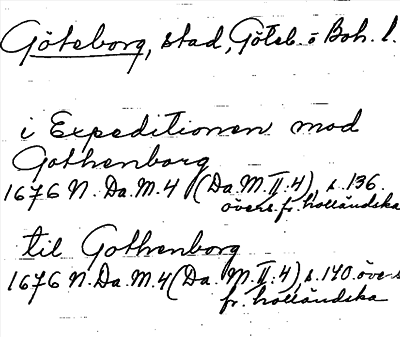 Göteborg, stad, Göteb. o Boh. l.
i Expeditionen mod
Gothenborg
1676 N. Da. M. 4 (Da. M. II. 4), s. 136.
övers. fr. holländska
til Gothenborg
1676 N. Da. M. 4 (Da. M. II. 4), s. 140. övers
fr. holländska